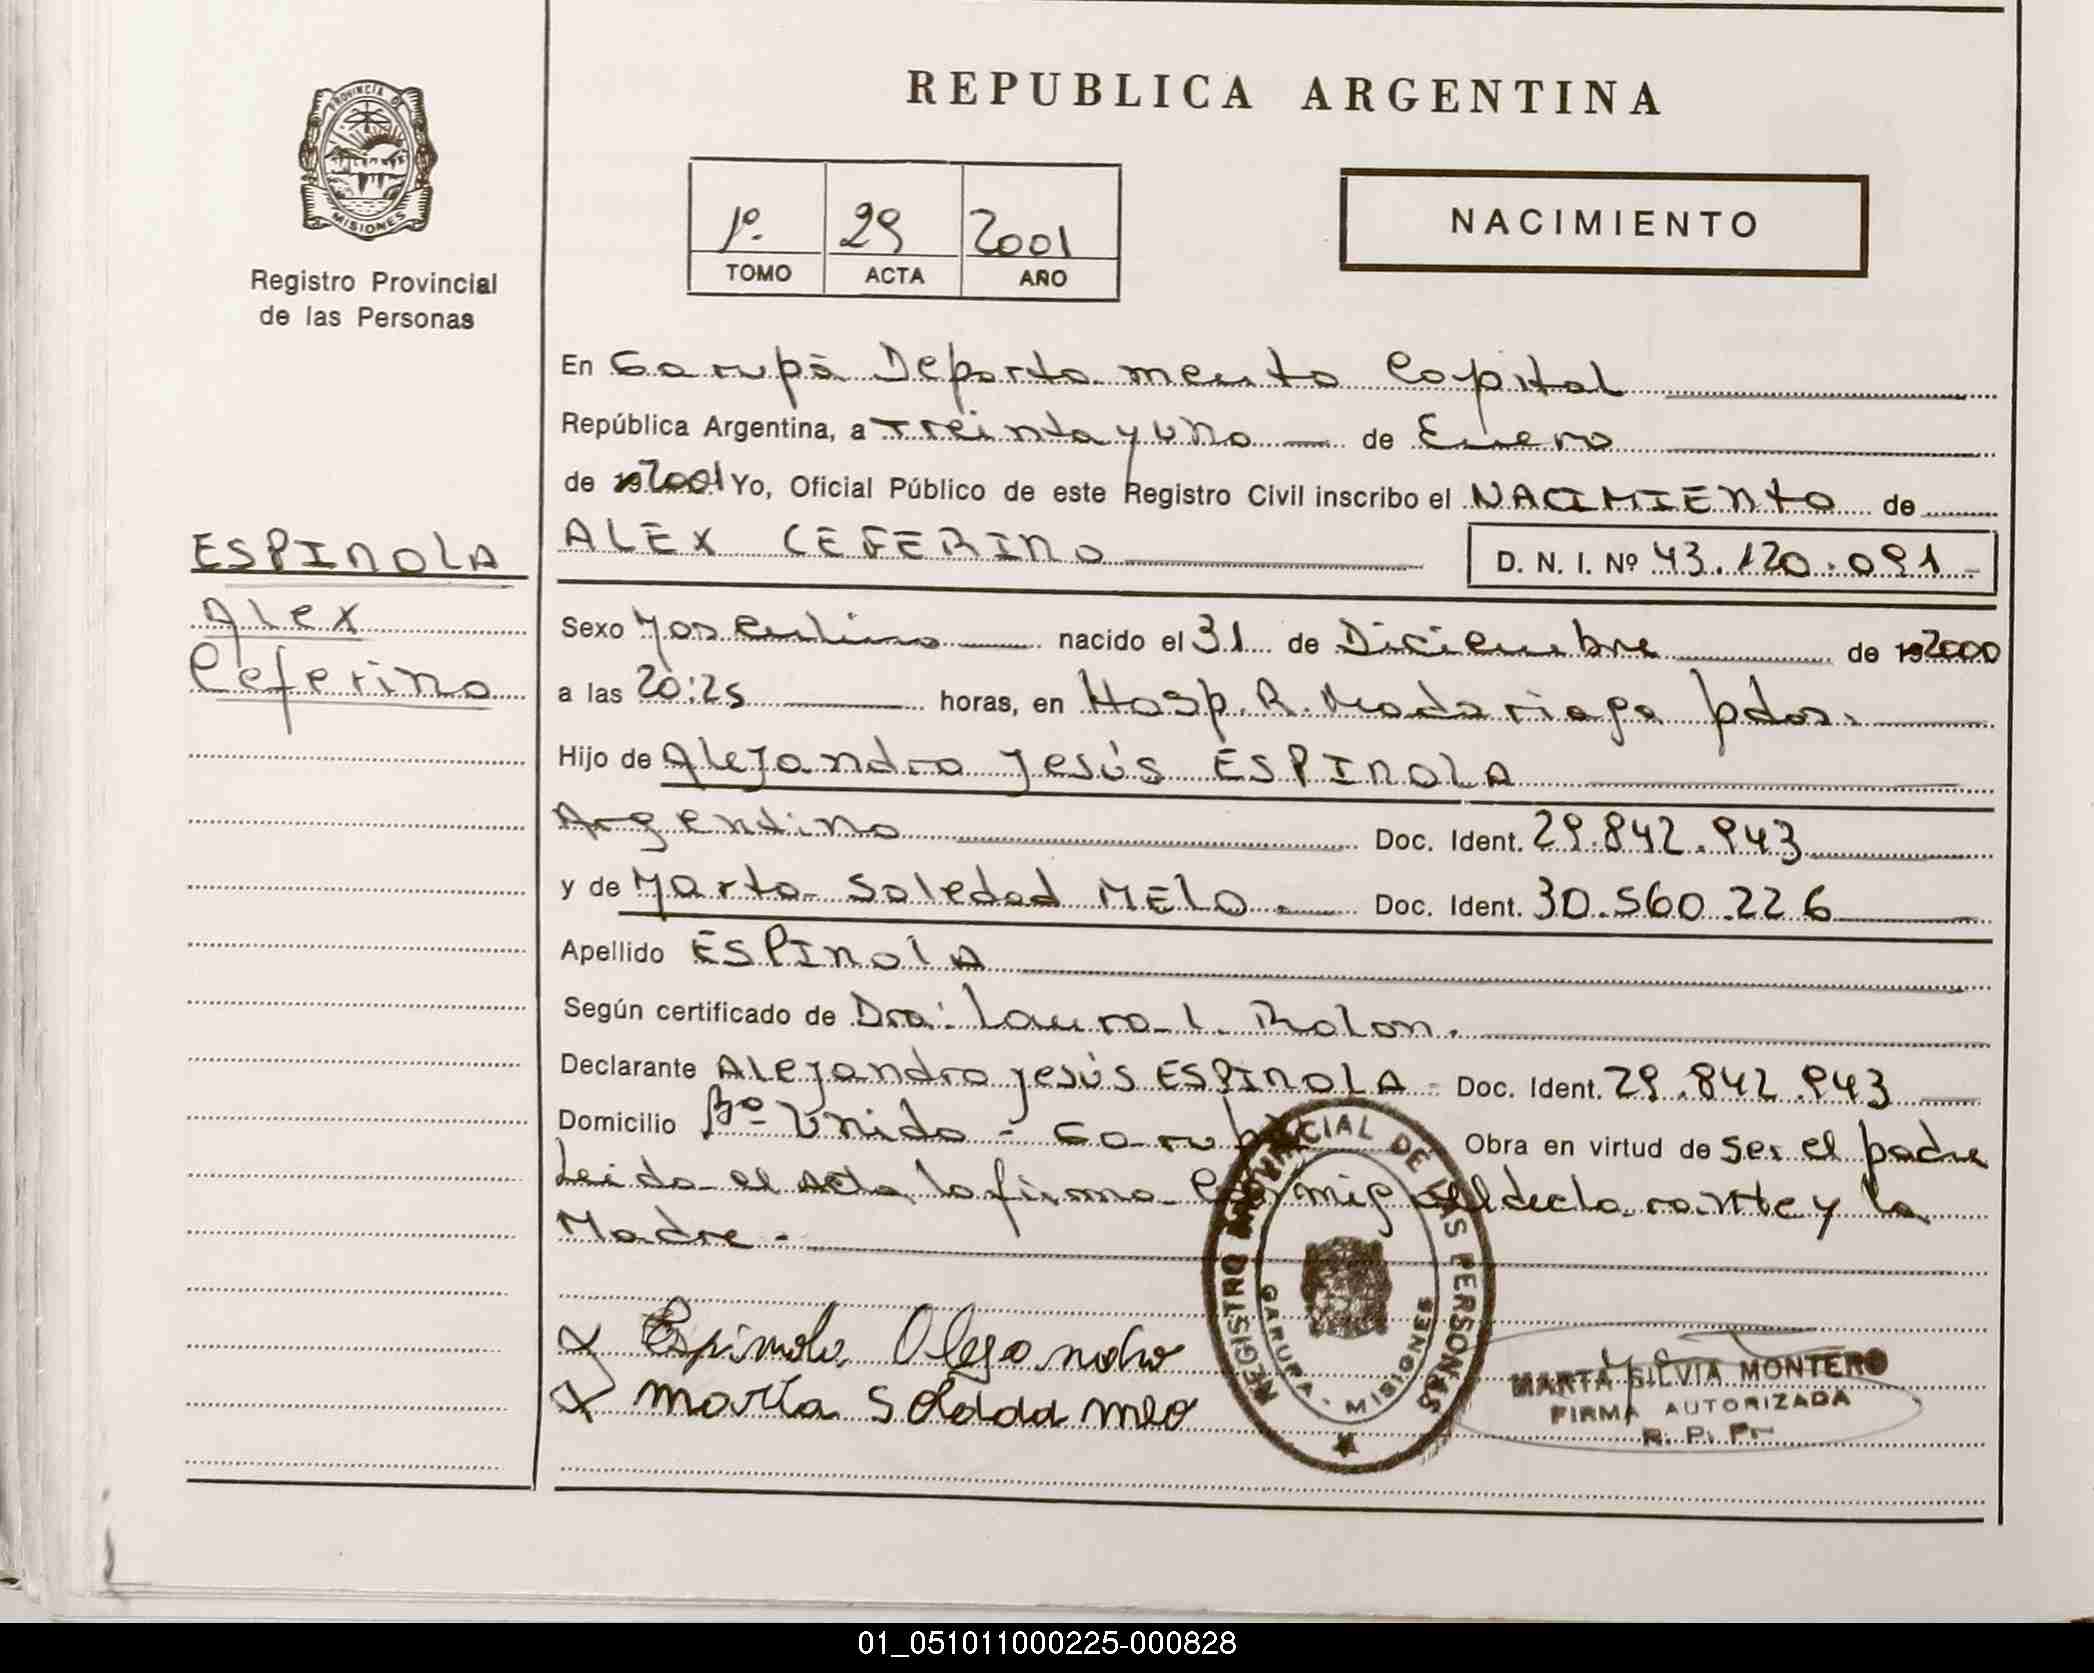 REPUBLICA ARGENTINA
PROVINCIA DE
MISIONES
Registro Provincial
de las Personas
1º. 29 2001
TOMO ACTA AÑO
NACIMIENTO
En Garupá Departamento Capital
República Argentina, a Treinta y uno de Enero
de 192001 Yo, Oficial Público de este Registro Civil inscribo el NACIMIENTO de
ALEX CEFERINO
D. N. I. Nº 43.120.091
ESPINOLA
Alex
Ceferino
Sexo Masculino nacido el 31 de Diciembre de 192000
a las 20:25 horas, en Hosp. R. Madariaga pdas.
Hijo de Alejandro Jesús ESPINOLA
Argentino Doc. Ident. 29.842.943
y de Marta Soledad MELO. Doc. Ident. 30.560.226
Apellido ESPINOLA
Según certificado de Dra: Laura I. Rolon.
Declarante Alejandro Jesús ESPINOLA - Doc. Ident. 29.842.943
Domicilio Bº Unido - Garupá Obra en virtud de ser el padre
Leida el Acta, la firma conmigo el declarante y la
Madre.-
Espinola Alejandro
Marta Soledad Melo
REGISTRO PROVINCIAL DE LAS PERSONAS
GARUPA - MISIONES
MARTA SILVIA MONTERO
FIRMA AUTORIZADA
R. P. P.
01_051011000225-000828